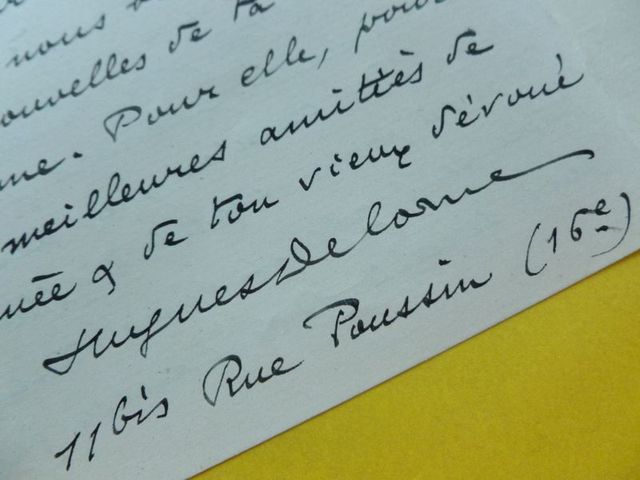 nous
nouvelles de ta
me. Pour elle, pour
meilleures amitiès de
née & de ton vieux dévoué
Hugues Delorme
11bis Rue Poussin (16e)